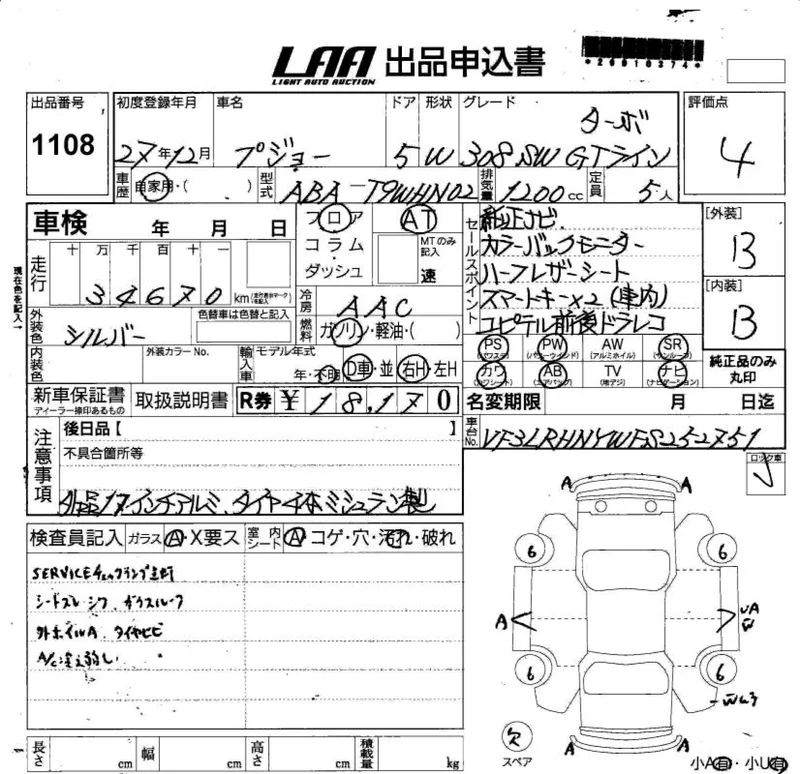 LAA 出品申込書
LIGHT AUTO AUCTION
*20810374*
出品番号
1108
初度登録年月
27年12月
車名
プジョー
ドア
5
形状
W
グレード
ターボ
308 SW GTライン
評価点
4
車歴
自家用・( )
型式
ABA-T9WHN02
排気量
1200cc
定員
5人
車検 年 月 日
フロア
コラム
・
ダッシュ
AT
MTのみ記入
速
セールスポイント
純正ナビ
カラーバックモニター
ハーフレザーシート
スマートキー×2(車内)
ユピテル前後ドラレコ
[外装]
B
[内装]
B
純正品のみ
丸印
走行
十 万 千 百 十
34670km
現在色を記入↑
外装色
シルバー
色替車は色替と記入
冷房
AAC
燃料
ガソリン・軽油・( )
内装色
外装カラーNo.
輸入車
モデル年式
年・不明
D車・並
右H・左H
PS
(パワステ)
PW
(パワーウインド)
AW
(アルミホイル)
SR
(サンルーフ)
カワ
(カワシート)
AB
(エアバッグ)
TV
(地デジ)
ナビ
(ナビゲーション)
新車保証書
ディーラー捺印あるもの
取扱説明書
R券 ¥18,170
名変期限 月 日迄
車台No.
VF3LRHNYWFS252751
注意事項
後日品【 】
不具合箇所等
外品17インチアルミ、タイヤ4本ミシュラン製
ロック車
検査員記入
ガラス
A・X要ス
室内シート
A・コゲ・穴・汚れ・破れ
SERVICEチェックランプ点灯
シートスレ シワ ガラスルーフ
外ホイルA タイヤヒビ
A/C冷え弱し
A
A
6
6
A
UA
W
6
6
A
A
スペア
欠
小A有・小U有
長さ cm
幅 cm
高さ cm
積載量 kg